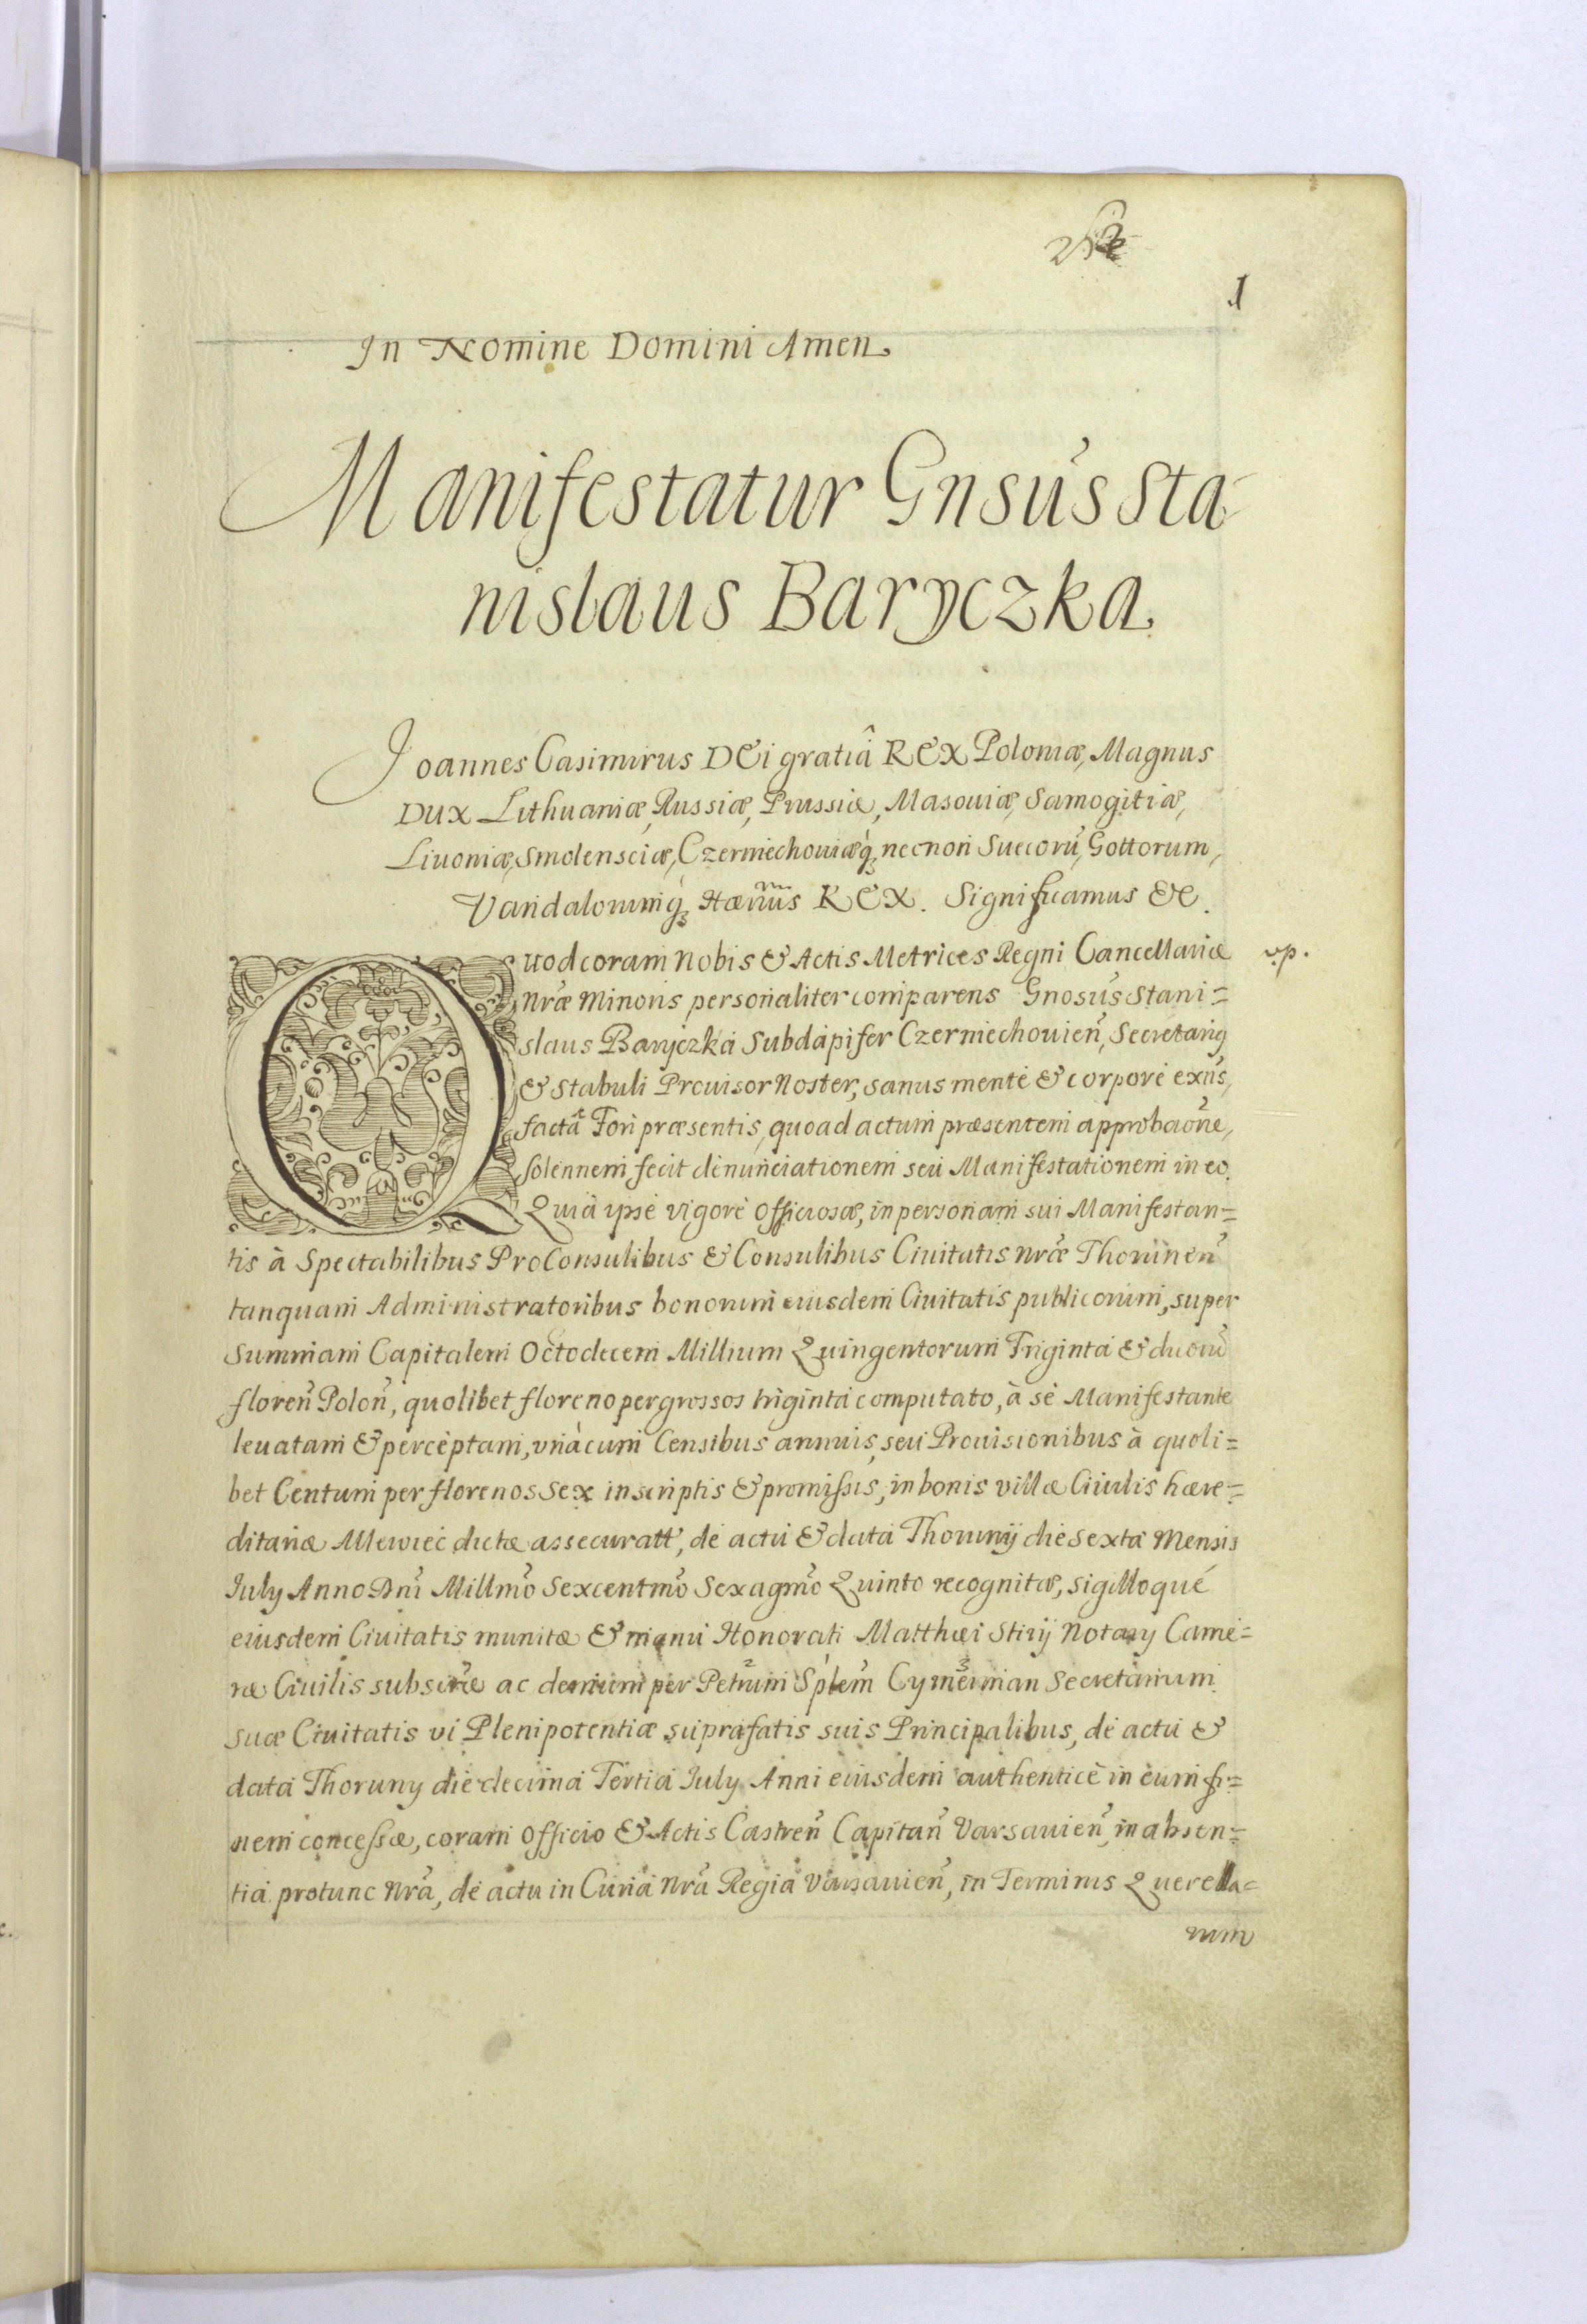 1
In Nomine Domini Amen
Manifestatur Gnsús Sta-
nislaus Baryczka.
Joannes Casimirus DEi gratiâ REX Poloniæ, Magnus
Dux Lithuaniæ, Russiæ, Prussiæ, Masouiæ, Samogitiæ,
Liuoniæ, Smolensciæ, Czerniechouiæq₃ necnon Suecorũ, Gottorum,
Vandalorumq₃ Hærius REX. Significamus &c.
Quod coram Nobis & Actis Metrices Regni Cancellariæ
Nr̃æ Minoris personaliter comparens Gnosús Stani=
slaus Baryczka Subdapifer Czerniechouień, Secretariꝯ
& Stabuli Prouisor Noster, sanus mente & corpore exñs,
factâ Fori præsentis, quoad actum præsentem approbaõne,
solennem fecit denunciationem seu Manifestationem in eo.
Quià ipse vigore officiosæ, in personam sui Manifestan=
tis à Spectabilibus ProConsulibus & Consulibus Ciuitatis nr̃æ Thoruneñ
tanquam Administratoribus bonorum eiusdem Ciuitatis publicorum, super
Summam Capitalem Octodecem Millium Quingentorum Triginta & duorũ
floreñ Poloñ, quolibet floreno per grossos triginta computato, à se Manifestante
leuatam & perceptam, vnàcum Censibus annuis, seu Prouisionibus à quoli=
bet Centum per florenos Sex inscriptis & promissis, in bonis villæ Ciuilis hære=
ditariæ Mlewiec dictæ assecuratt, de actu & data Thorunij die Sexta Mensis
July Anno Dñi Millm̃o Sexcentm̃o Sexagm̃o Quinto recognitæ, sigilloque
eiusdem Ciuitatis munitæ & manu Honorati Matthæi Notary Came=
ræ Ciuilis subscr̃æ ac demum per Petrum Cymerman Secretarium
suæ Ciuitatis vi Plenipotentiæ suprafatis suis Principalibus, de actu &
data Thoruny die decima Tertia July Anni eiusdem authentice in eum fi=
nem concessæ, coram Officio & Actis Castreñ Capitañ Varsauieñ, in absen=
tia protunc Nr̃a, de actu in Curia Nr̃a Regia Varsauieñ, in Terminis Querela=
rum